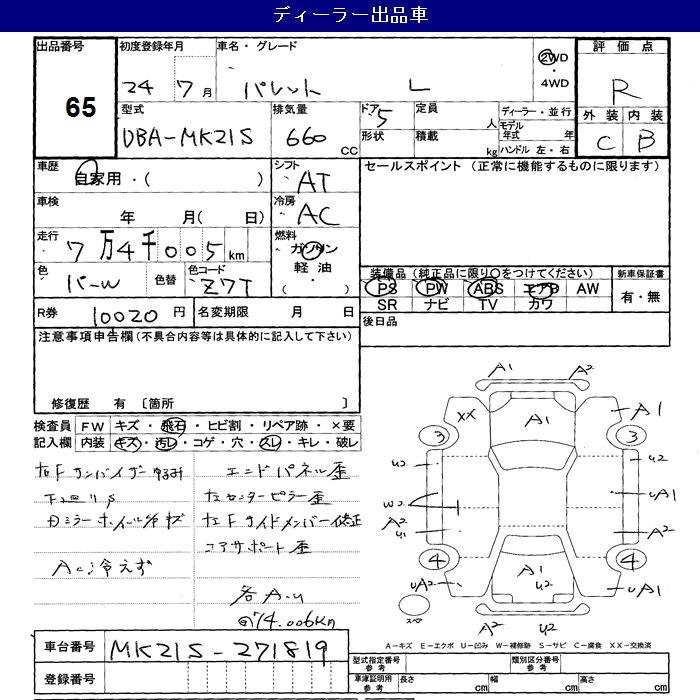 ディーラー出品車
出品番号 初度登録年月 車名・グレード 評価点
65
24 7月 パレット L 2WD・4WD R
型式 排気量 ドア 定員 ディーラー・並行 外装 内装
DBA-MK21S 660 CC 5 人 モデル年式 年 C B
形状 積載 kg ハンドル 左・右
車歴 シフト セールスポイント (正常に機能するものに限ります)
自家用・( ) AT
車検 冷房
年 月(日) AC
走行 燃料
7万4千005km ガソリン
軽油・
色 色替 色コード 装備品(純正品に限り○をつけてください) 新車保証書
パーw Z7T PS PW ABS エアB AW 有・無
SR ナビ TV カワ
R券 10020円 名変期限 月 日 後日品
注意事項申告欄(不具合内容等は具体的に記入して下さい)
修復歴 有 〔箇所 〕
検査員 FW キズ・飛石・ヒビ割・リペア跡・×要
記入欄 内装 キズ・汚レ・コゲ・穴・スレ・キレ・破レ
右Fサンバイザーゆるみ エンドパネル歪
下廻りS 左センターピラー歪
ミラー ホイールキズ 左Fサイドメンバー修正
コアサポート歪
AC冷えず
各A.u
074.006Km
A1 A2
XX A1 A1
3 3
u2 u2
w2 uA1
A2 u1 A2
4 4
uA2 A1 u2 uA1
スペア
A2 u2
A-キズ E-エクボ U-凹み W-補修跡 S-サビ C-腐食 XX-交換済
車台番号 MK21S-271819
登録番号
型式指定番号 参考 類別区分番号 参考
車庫証明用 参考 長さ cm 幅 cm 高さ cm